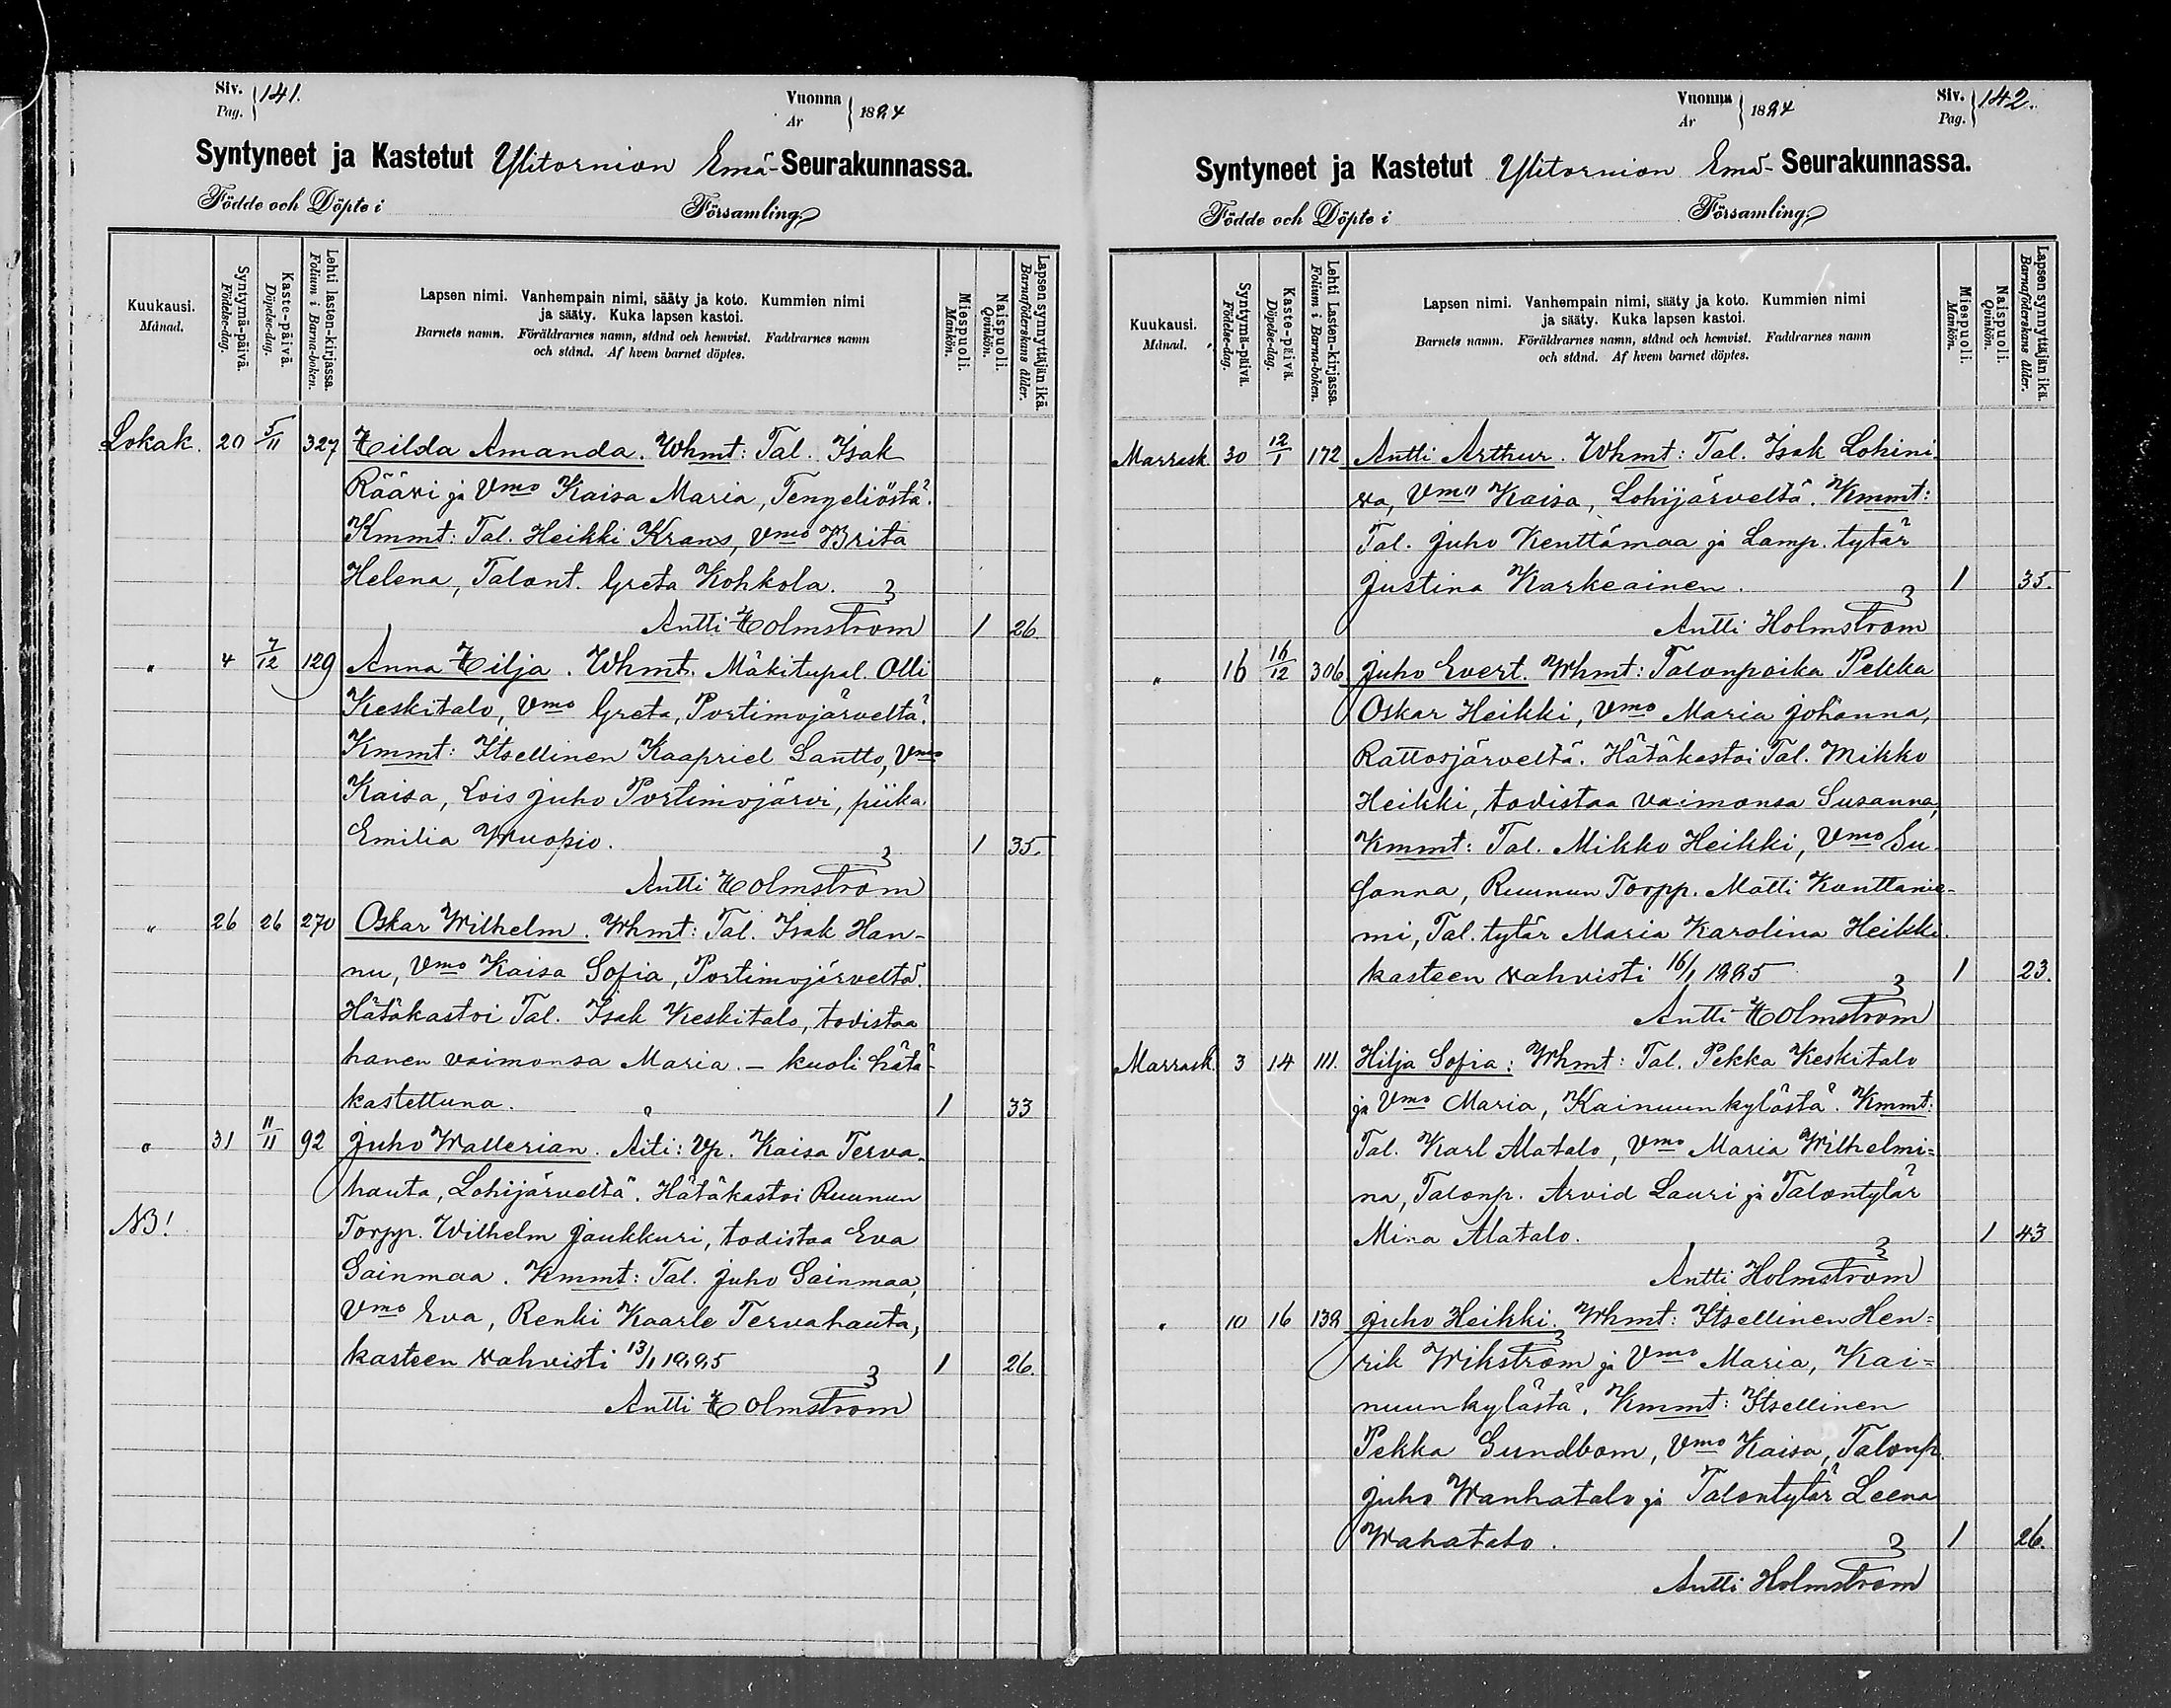 Siv. Pag. 141.
Vuonna År 1884
Syntyneet ja Kastetut Ylitornion Emä-Seurakunnassa.
Födde och Döpte i Församling.
Kuukausi. Månad.
Syntymä-päivä. Födelse-dag.
Kaste-päivä. Döpelse-dag.
Lehti lasten-kirjassa. Folium i Barna-boken.
Lapsen nimi. Vanhempain nimi, sääty ja koto. Kummien nimi
ja sääty. Kuka lapsen kastoi.
Barnets namn. Föräldrarnes namn, stånd och hemvist. Faddrarnes namn
och stånd. Af hvem barnet döptes.
Miespuoli. Mankön.
Naispuoli. Qvinkön.
Lapsen synnyttäjän ikä. Barnaföderskans ålder.
Lokak. 20 5/11 327 Hilda Amanda. Whmt: Tal. Isak
Rääri ja Vmo Kaisa Maria, Tengeliöstä.
Kmmt: Tal. Heikki Krans, Vmo Brita
Helena, Talont. Greta Kohkola.
Antti Holmström 1 26.
" 4 7/12 129 Anna Hilja. Whmt. Mäkitupal. Olli
Keskitalo, Vmo Greta, Portimojärveltä.
Kmmt: Itsellinen Kaapriel Lantto, Vmo
Kaisa, Lois Juho Portimojärvi, piika
Emilia Wuopio. 1 35.
Antti Holmström
" 26 26 270 Oskar Wilhelm. Whmt: Tal. Isak Han-
nu, Vmo Kaisa Sofia, Portimojärveltä.
Hätäkastoi Tal. Isak Keskitalo, todistaa
hänen vaimonsa Maria. - kuoli hätä-
kastettuna. 1 33
" 31 11/11 92 Juho Wallerian. Äiti: Vp. Kaisa Terva-
hauta, Lohijärveltä. Hätäkastoi Ruunun
NB! Torpp. Wilhelm Jaukkuri, todistaa Eva
Sainmaa. Kmmt: Tal. Juho Sainmaa,
Vmo Eva, Renki Kaarle Tervahauta,
kasteen vahvisti 13/1 1885 1 26.
Antti Holmström
Vuonna År 1884
Siv. Pag. 142.
Syntyneet ja Kastetut Ylitornion Emä-Seurakunnassa.
Födde och Döpte i Församling.
Kuukausi. Månad.
Syntymä-päivä. Födelse-dag.
Kaste-päivä. Döpelse-dag.
Lehti Lasten-kirjassa. Folium i Barna-boken.
Lapsen nimi. Vanhempain nimi, sääty ja koto. Kummien nimi
ja sääty. Kuka lapsen kastoi.
Barnets namn. Föräldrarnes namn, stånd och hemvist. Faddrarnes namn
och stånd. Af hvem barnet döptes.
Miespuoli. Mankön.
Naispuoli. Qvinkön.
Lapsen synnyttäjän ikä. Barnaföderskans ålder.
Marrask. 30 12/1 172 Antti Arthur. Whmt: Tal. Isak Lohini-
va, Vmo Kaisa, Lohijärveltä. Kmmt:
Tal. Juho Kenttämaa ja Lamp. tytär
Justina Karkeainen. 1 35.
Antti Holmström
" 16 16/12 306 Juho Evert. Whmt: Talonpoika Pekka
Oskar Heikki, Vmo Maria Johanna,
Rattosjärveltä. Hätäkastoi Tal. Mikko
Heikki, todistaa vaimonsa Susanna,
Kmmt: Tal. Mikko Heikki, Vmo Su-
sanna, Ruunun Torpp. Matti Kanttanie-
mi, Tal. tytär Maria Karolina Heikki.
kasteen vahvisti 16/1 1885 1 23.
Antti Holmström
Marrask. 3 14 111. Hilja Sofia: Whmt: Tal. Pekka Keskitalo
ja Vmo Maria, Kainuunkylästä. Kmmt:
Tal. Karl Alatalo, Vmo Maria Wilhelmi=
na, Talonp. Arvid Lauri ja Talontytär
Mina Alatalo. 1 43
Antti Holmström
" 10 16 138 Juho Heikki. Whmt: Itsellinen Hen=
rik Wikström ja Vmo Maria, Kai=
nuunkylästä. Kmmt: Itsellinen
Pekka Sundbom, Vmo Kaisa, Talonp.
Juho Wanhatalo ja Talontytär Leena
Wahatalo. 1 26.
Antti Holmström